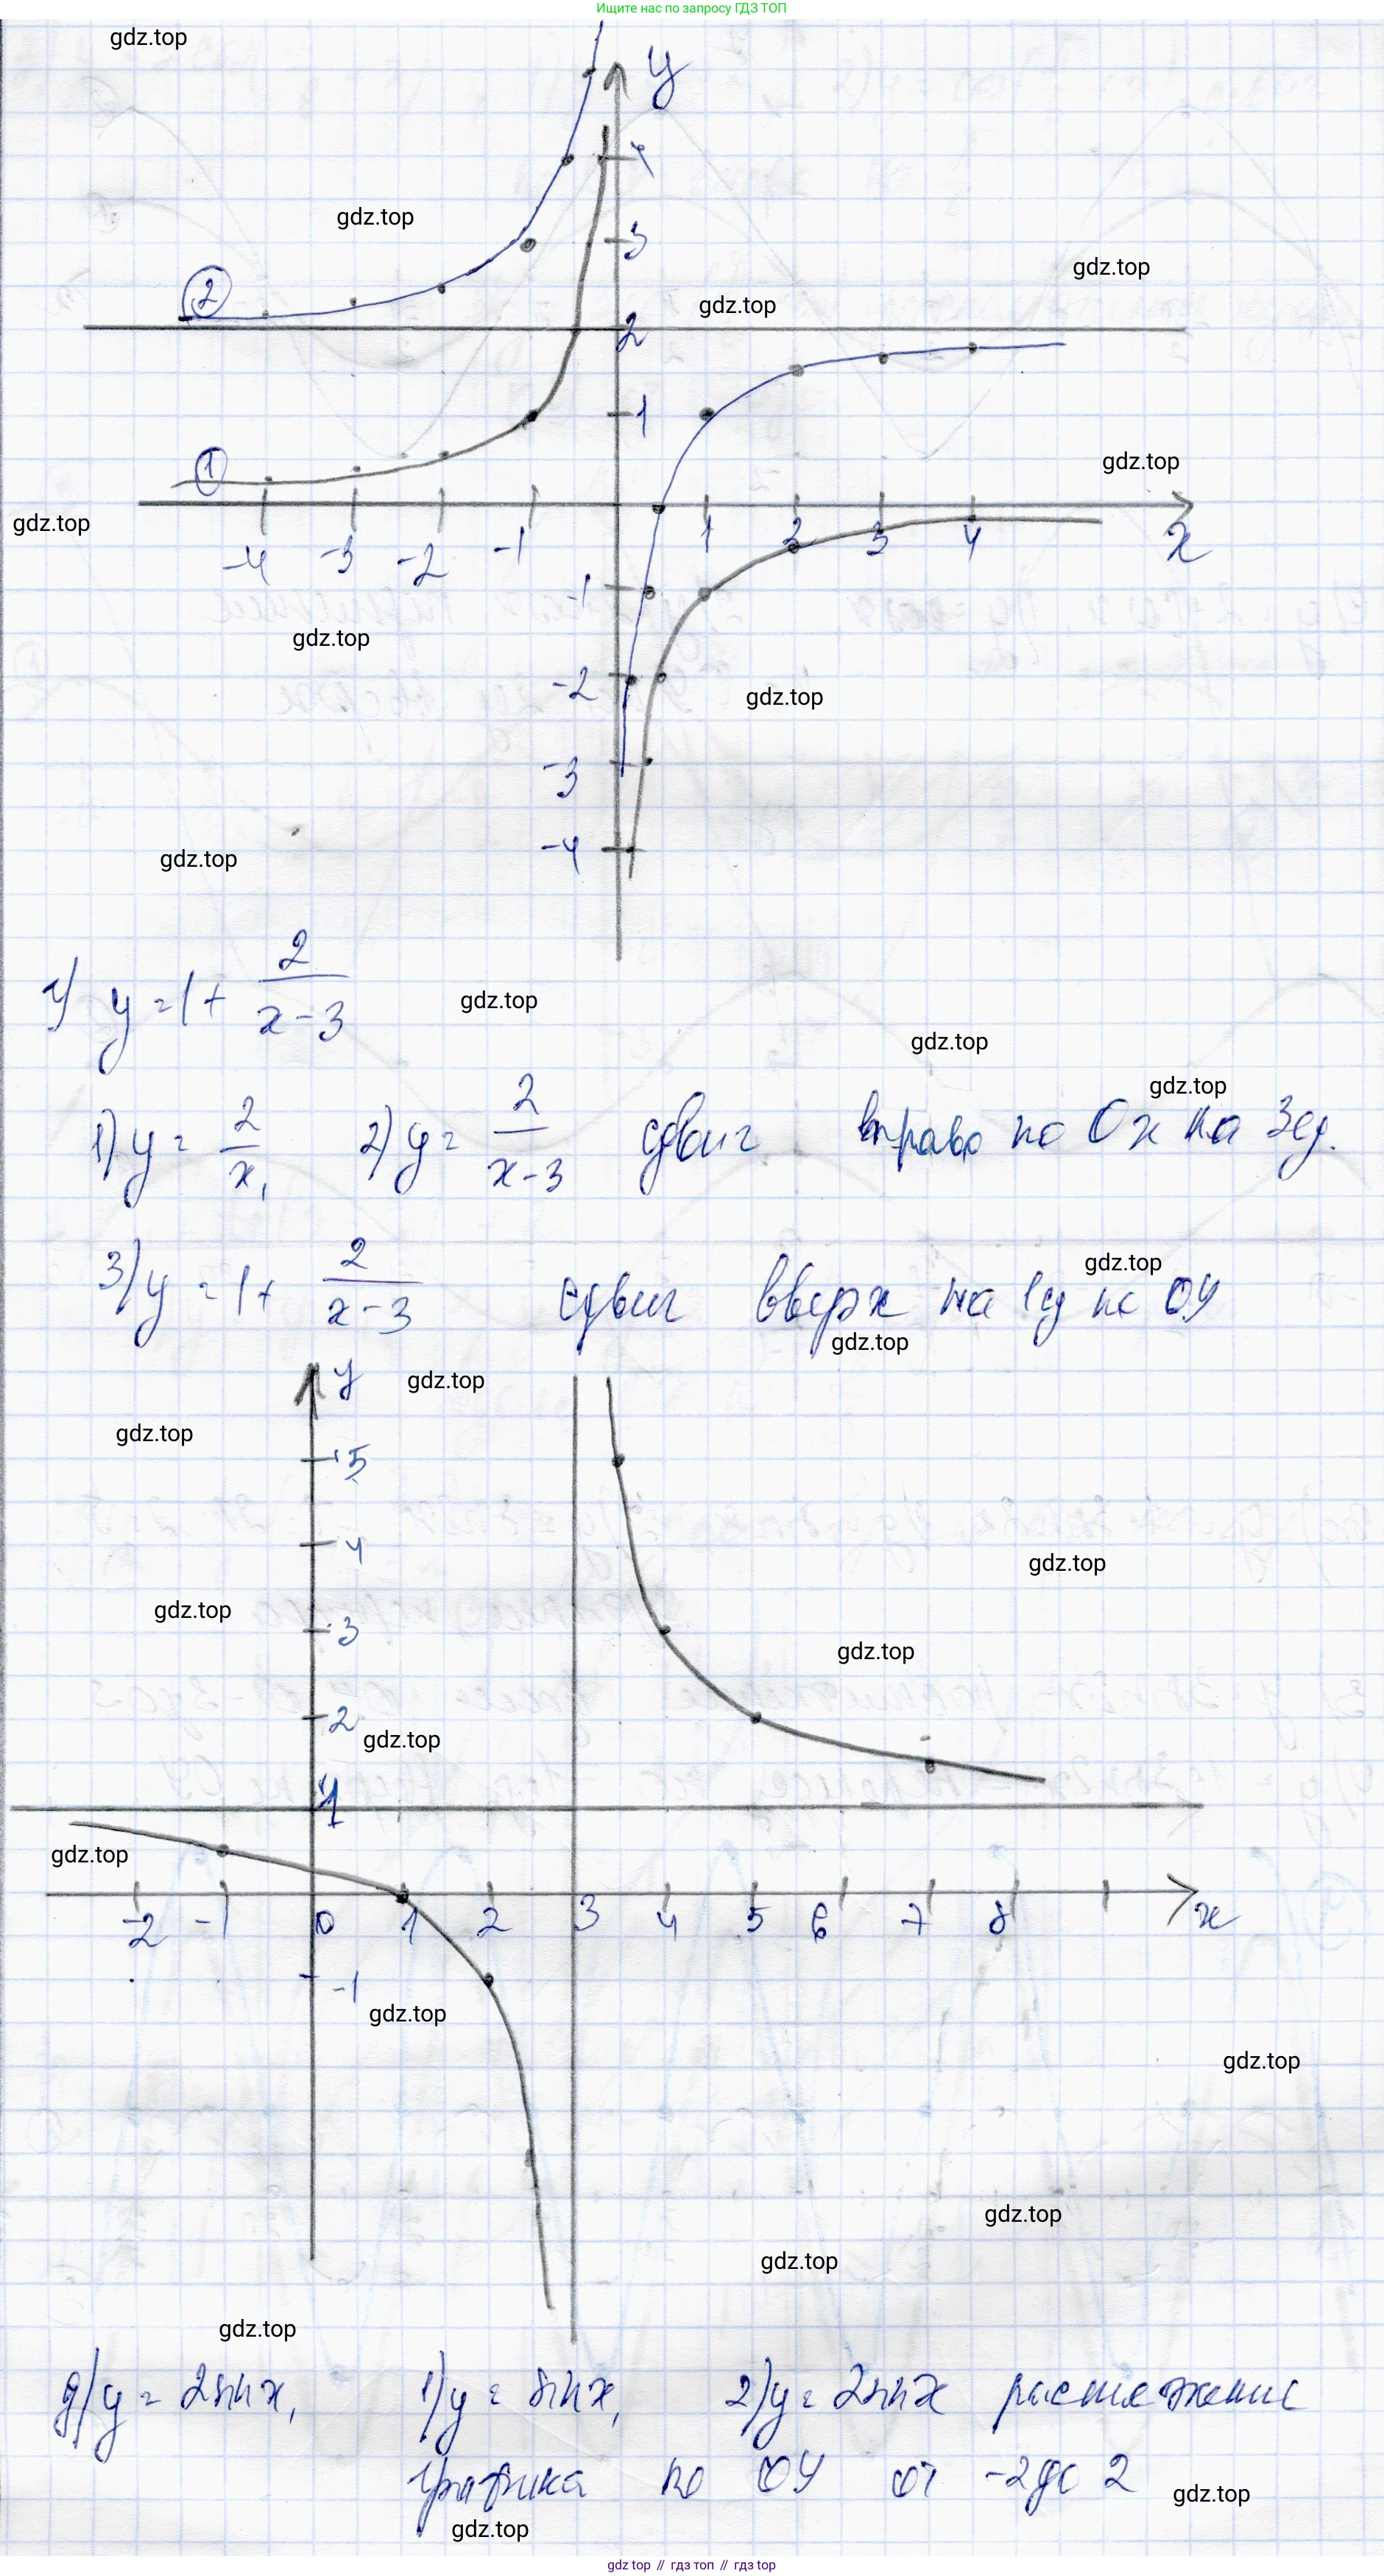 Ищите нас по запросу ГДЗ ТОП
gdz.top
y
4
gdz.top
3
gdz.top
2
gdz.top
2
1
1
gdz.top
gdz.top
-4 -3 -2 -1 1 2 3 4 x
-1
gdz.top
-2
gdz.top
-3
-4
gdz.top
г) y = 1 + 2/(x-3)
gdz.top
gdz.top
gdz.top
1) y = 2/x, 2) y = 2/(x-3) сдвиг вправо по Ox на 3ед.
gdz.top
3) y = 1 + 2/(x-3) сдвиг вверх на 1ед по OY
gdz.top
y
gdz.top
gdz.top
5
4
gdz.top
gdz.top
3
gdz.top
2
gdz.top
1
gdz.top
-2 -1 0 1 2 3 4 5 6 7 8 x
-1
gdz.top
gdz.top
gdz.top
gdz.top
gdz.top
д) y = 2sin x, 1) y = sin x, 2) y = 2sin x растяжение
графика по OY от -2 до 2
gdz.top
gdz.top
gdz.top // гдз топ // гдз.top